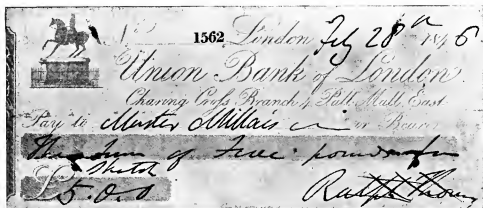 No 1562 London Feby 28th 1846
Union Bank of London
Charing Cross Branch 4, Pall Mall, East
Pay to Master Millais or Bearer
The Sum of Five pounds for
Sketch
£5.0.0 Ralph Thomas